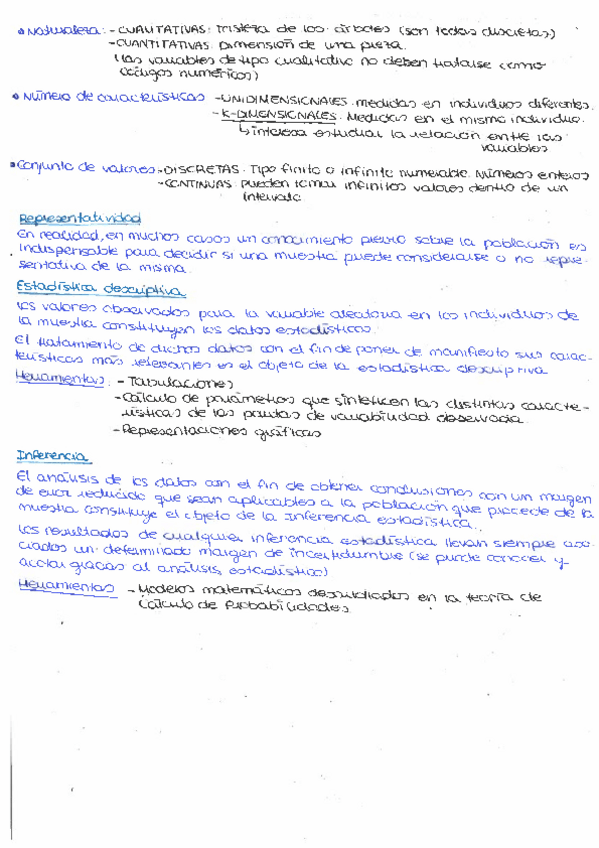 • Naturaleza: - CUALITATIVAS: tristeza de los árboles (son todas discretas)
- CUANTITATIVAS. Dimensión de una pieza.
(las variables de tipo cualitativo no deben tratarse como
códigos numéricos)
• Número de características - UNIDIMENSIONALES. medidas en individuos diferentes.
- K-DIMENSIONALES. Medidas en el mismo individuo.
↳ interesa estudiar la relación entre las
variables
• Conjunto de valores - DISCRETAS. Tipo finito o infinito numerable. Números enteros
- CONTINUAS. Pueden tomar infinitos valores dentro de un
intervalo
Representatividad
En realidad, en muchos casos un conocimiento previo sobre la población es
indispensable para decidir si una muestra puede considerarse o no repre-
sentativa de la misma.
Estadística descriptiva
Los valores observados para la variable aleatoria en los individuos de
la muestra constituyen los datos estadísticos.
El tratamiento de dichos datos con el fin de poner de manifiesto sus carac-
terísticas más relevantes es el objeto de la estadística descriptiva
Herramientas: - Tabulaciones
- Cálculo de parámetros que sinteticen las distintas caracte-
rísticas de las pautas de variabilidad observada.
- Representaciones gráficas
Inferencia
El análisis de los datos con el fin de obtener conclusiones con un margen
de error reducido que sean aplicables a la población que procede de la
muestra constituye el objeto de la Inferencia estadística.
Los resultados de cualquier inferencia estadística llevan siempre aso-
ciados un determinado margen de incertidumbre (se puede conocer y
acotar gracias al análisis estadístico)
Herramientas - Modelos matemáticos desarrollados en la teoría de
Cálculo de Probabilidades.